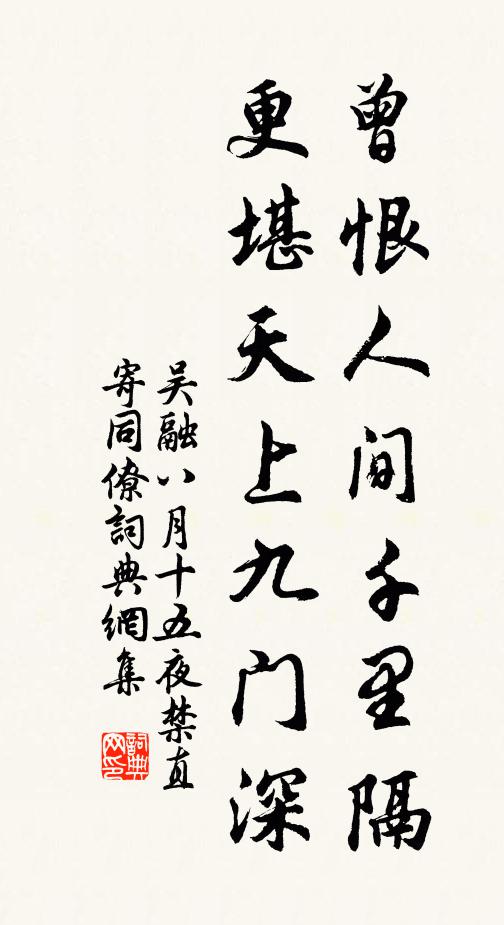 曾恨人间千里隔
更堪天上九门深
吴融八月十五夜禁直
寄同僚詞典網集
詞典
网印